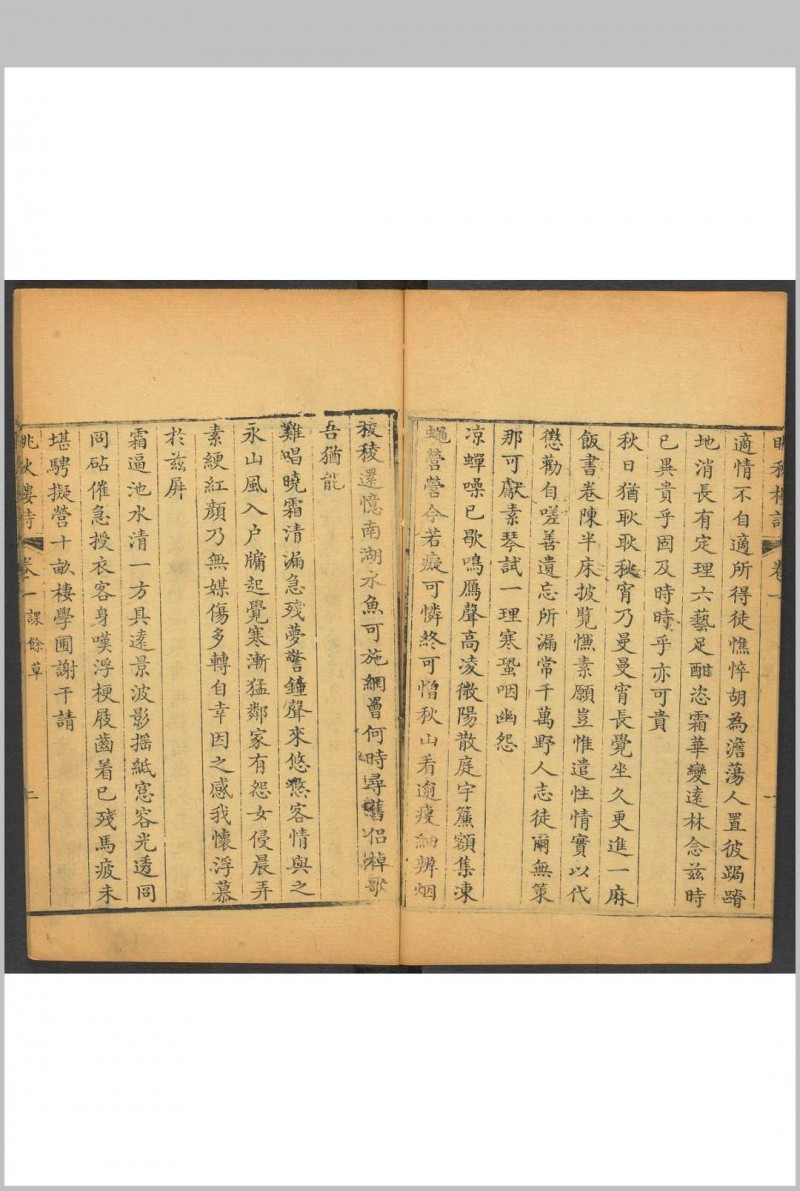 眺秋樓詩 卷一 一
適情不自適所得徒憔悴胡為澹蕩人置彼跼蹐
地消長有定理六藝足酣恣霜華變遠林念兹時
已異貴乎因及時時乎亦可貴
秋日猶耿耿秋宵乃曼曼宵長覺坐久更進一麻
飯書卷陳半床披覽慊素願豈惟遣性情實以代
懲勸自嗟善遺忘所漏常千萬野人志徒爾無策
那可獻素琴試一理寒蛩咽幽怨
凉蟬噪已歇鳴鴈聲高凌微陽散庭宇簾額集凍
蠅營營今若癡可憐終可憎秋山看逾瘦細辨烟
稜稜還憶南湖水魚可施網罾何時尋舊侣棹歌
吾猶能
難唱曉霜清漏急殘夢警鐘聲來悠悠客情與之
永山風入户牖起覺寒漸猛鄰家有怨女侵晨弄
素綆紅顔乃無媒傷多轉自幸因之感我懷浮慕
於兹屏
霜逼池水清一方具遠景波影摇紙窓容光透冏
冏砧催急授衣客身嘆浮梗屐齒着已殘馬疲未
堪騁擬營十畝棲學圃謝干請
眺秋樓詩 卷一 課餘草 二